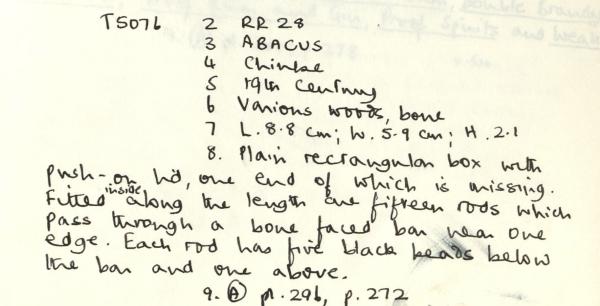 T5076 2 RR 28
3 ABACUS
4 Chinese
5 19th Century
6 Various woods, bone
7 L. 8.8 cm; W. 5.9 cm; H. 2.1
8. Plain rectangular box with
push-on lid, one end of which is missing.
Fitted inside along the length are fifteen rods which
pass through a bone faced bar near one
edge. Each rod has five black beads below
the bar and one above.
9. Ⓐ pl. 296, p. 272